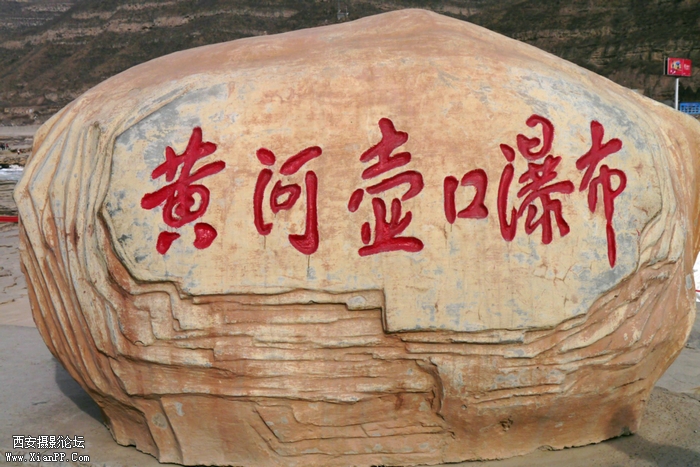 黄河壶口瀑布
西安摄影论坛
Www.XianPP.Com